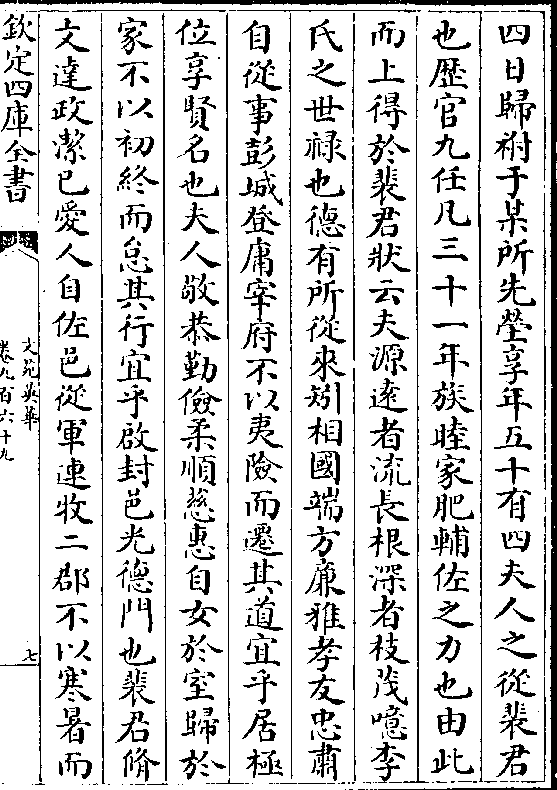 四日歸祔于某所先塋享年五十有四夫人之從裴君
也歴官九任凡三十一年族睦家肥輔佐之力也由此
而上得於裴君狀云夫源逺者流長根深者枝茂噫李
氏之世禄也德有所從來矧相國端方廉雅孝友忠肅
自從事彭城登庸宰府不以夷險而遷其道宜乎居極
位享賢名也夫人敬恭勤儉柔順慈惠自女於室歸於
家不以初終而怠其行宜乎啟封邑光德門也裴君脩
文達政潔已愛人自佐邑從軍連牧二郡不以寒暑而
欽定四庫全書
文苑英華
卷九百六十九
七